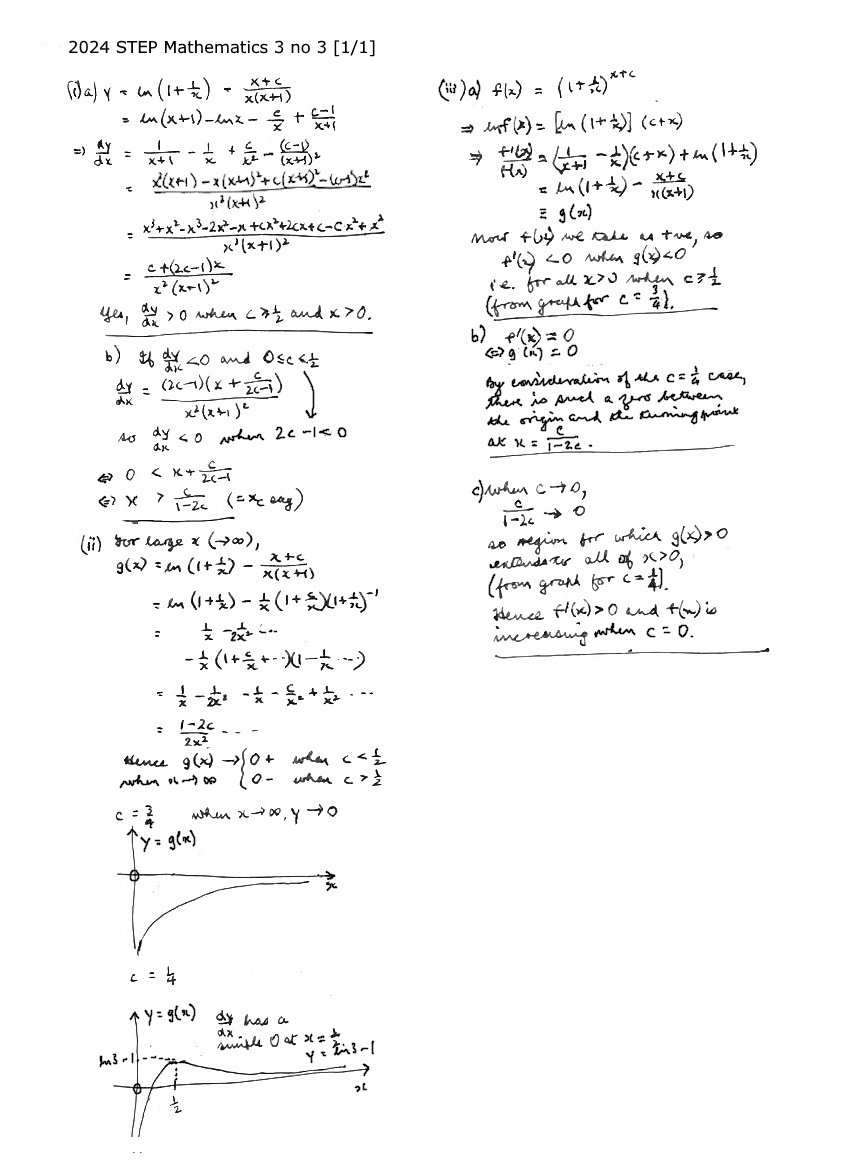 2024 STEP Mathematics 3 no 3 [1/1]
(i) a) y = ln(1+1/x) - (x+c)/(x(x+1))
= ln(x+1) - ln x - c/x + (c-1)/(x+1)
=> dy/dx = 1/(x+1) - 1/x + c/x² - (c-1)/(x+1)²
= (x²(x+1) - x(x+1)² + c(x+1)² - (c-1)x²)/(x²(x+1)²)
= (x³+x²-x³-2x²-x+cx²+2cx+c-cx²+x²)/(x²(x+1)²)
= (c+(2c-1)x)/(x²(x+1)²)
Yes, dy/dx > 0 when c ≥ 1/2 and x > 0.
b) If dy/dx < 0 and 0 ≤ c < 1/2
dy/dx = (2c-1)(x + c/(2c-1))/(x²(x+1)²)
so dy/dx < 0 when 2c-1 < 0
<=> 0 < x + c/(2c-1)
<=> x > c/(1-2c) (= x_c say)
(ii) For large x (→∞),
g(x) = ln(1+1/x) - (x+c)/(x(x+1))
= ln(1+1/x) - 1/x (1+c/x)(1+1/x)⁻¹
= 1/x - 1/2x² ...
- 1/x (1+c/x+...)(1-1/x ...)
= 1/x - 1/2x² - 1/x - c/x² + 1/x² ...
= (1-2c)/2x² ...
Hence g(x) → { 0+ when c < 1/2
when x→∞ { 0- when c > 1/2
c = 3/4 when x→∞, y→0
y = g(x)
x
c = 1/4
y = g(x) dy/dx has a
simple 0 at x = 1/2
y = ln3-1
ln3-1
x
1/2
(iii) a) f(x) = (1+1/x)^(x+c)
=> ln f(x) = [ln(1+1/x)] (c+x)
=> f'(x)/f(x) = (1/(x+1) - 1/x)(c+x) + ln(1+1/x)
= ln(1+1/x) - (x+c)/(x(x+1))
≡ g(x)
Now f(x) we take as +ve, so
f'(x) < 0 when g(x) < 0
i.e. for all x > 0 when c ≥ 1/2
(from graph for c = 3/4).
b) f'(x) = 0
<=> g(x) = 0
By consideration of the c = 1/4 case,
there is such a zero between
the origin and the turning point
at x = c/(1-2c).
c) when c → 0,
c/(1-2c) → 0
so region for which g(x) > 0
extends to all of x > 0,
(from graph for c = 1/4).
Hence f'(x) > 0 and f(x) is
increasing when c = 0.